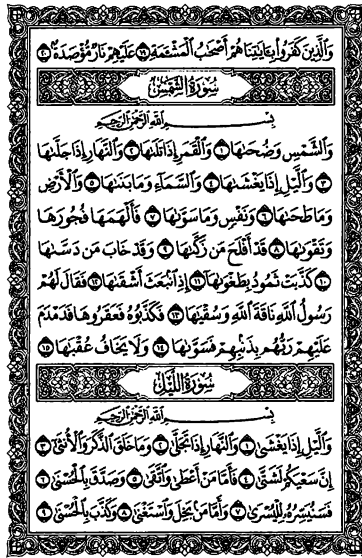 وَالَّذِينَ كَفَرُوا بِـَٔايَـٰتِنَا هُمْ أَصْحَـٰبُ الْمَشْـَٔمَةِ ١٩ عَلَيْهِمْ نَارٌ مُّؤْصَدَةٌ ٢٠
سُورَةُ الشَّمْسِ
بِسْمِ اللَّهِ الرَّحْمَـٰنِ الرَّحِيمِ
وَالشَّمْسِ وَضُحَىٰهَا ١ وَالْقَمَرِ إِذَا تَلَىٰهَا ٢ وَالنَّهَارِ إِذَا جَلَّىٰهَا
٣ وَالَّيْلِ إِذَا يَغْشَىٰهَا ٤ وَالسَّمَآءِ وَمَا بَنَىٰهَا ٥ وَالْأَرْضِ
وَمَا طَحَىٰهَا ٦ وَنَفْسٍ وَمَا سَوَّىٰهَا ٧ فَأَلْهَمَهَا فُجُورَهَا
وَتَقْوَىٰهَا ٨ قَدْ أَفْلَحَ مَن زَكَّىٰهَا ٩ وَقَدْ خَابَ مَن دَسَّىٰهَا
١٠ كَذَّبَتْ ثَمُودُ بِطَغْوَىٰهَا ١١ إِذِ انۢبَعَثَ أَشْقَىٰهَا ١٢ فَقَالَ لَهُمْ
رَسُولُ اللَّهِ نَاقَةَ اللَّهِ وَسُقْيَـٰهَا ١٣ فَكَذَّبُوهُ فَعَقَرُوهَا فَدَمْدَمَ
عَلَيْهِمْ رَبُّهُم بِذَنۢبِهِمْ فَسَوَّىٰهَا ١٤ وَلَا يَخَافُ عُقْبَـٰهَا ١٥
سُورَةُ اللَّيْلِ
بِسْمِ اللَّهِ الرَّحْمَـٰنِ الرَّحِيمِ
وَالَّيْلِ إِذَا يَغْشَىٰ ١ وَالنَّهَارِ إِذَا تَجَلَّىٰ ٢ وَمَا خَلَقَ الذَّكَرَ وَالْأُنثَىٰٓ ٣
إِنَّ سَعْيَكُمْ لَشَتَّىٰ ٤ فَأَمَّا مَنْ أَعْطَىٰ وَاتَّقَىٰ ٥ وَصَدَّقَ بِالْحُسْنَىٰ ٦
فَسَنُيَسِّرُهُ لِلْيُسْرَىٰ ٧ وَأَمَّا مَنۢ بَخِلَ وَاسْتَغْنَىٰ ٨ وَكَذَّبَ بِالْحُسْنَىٰ ٩